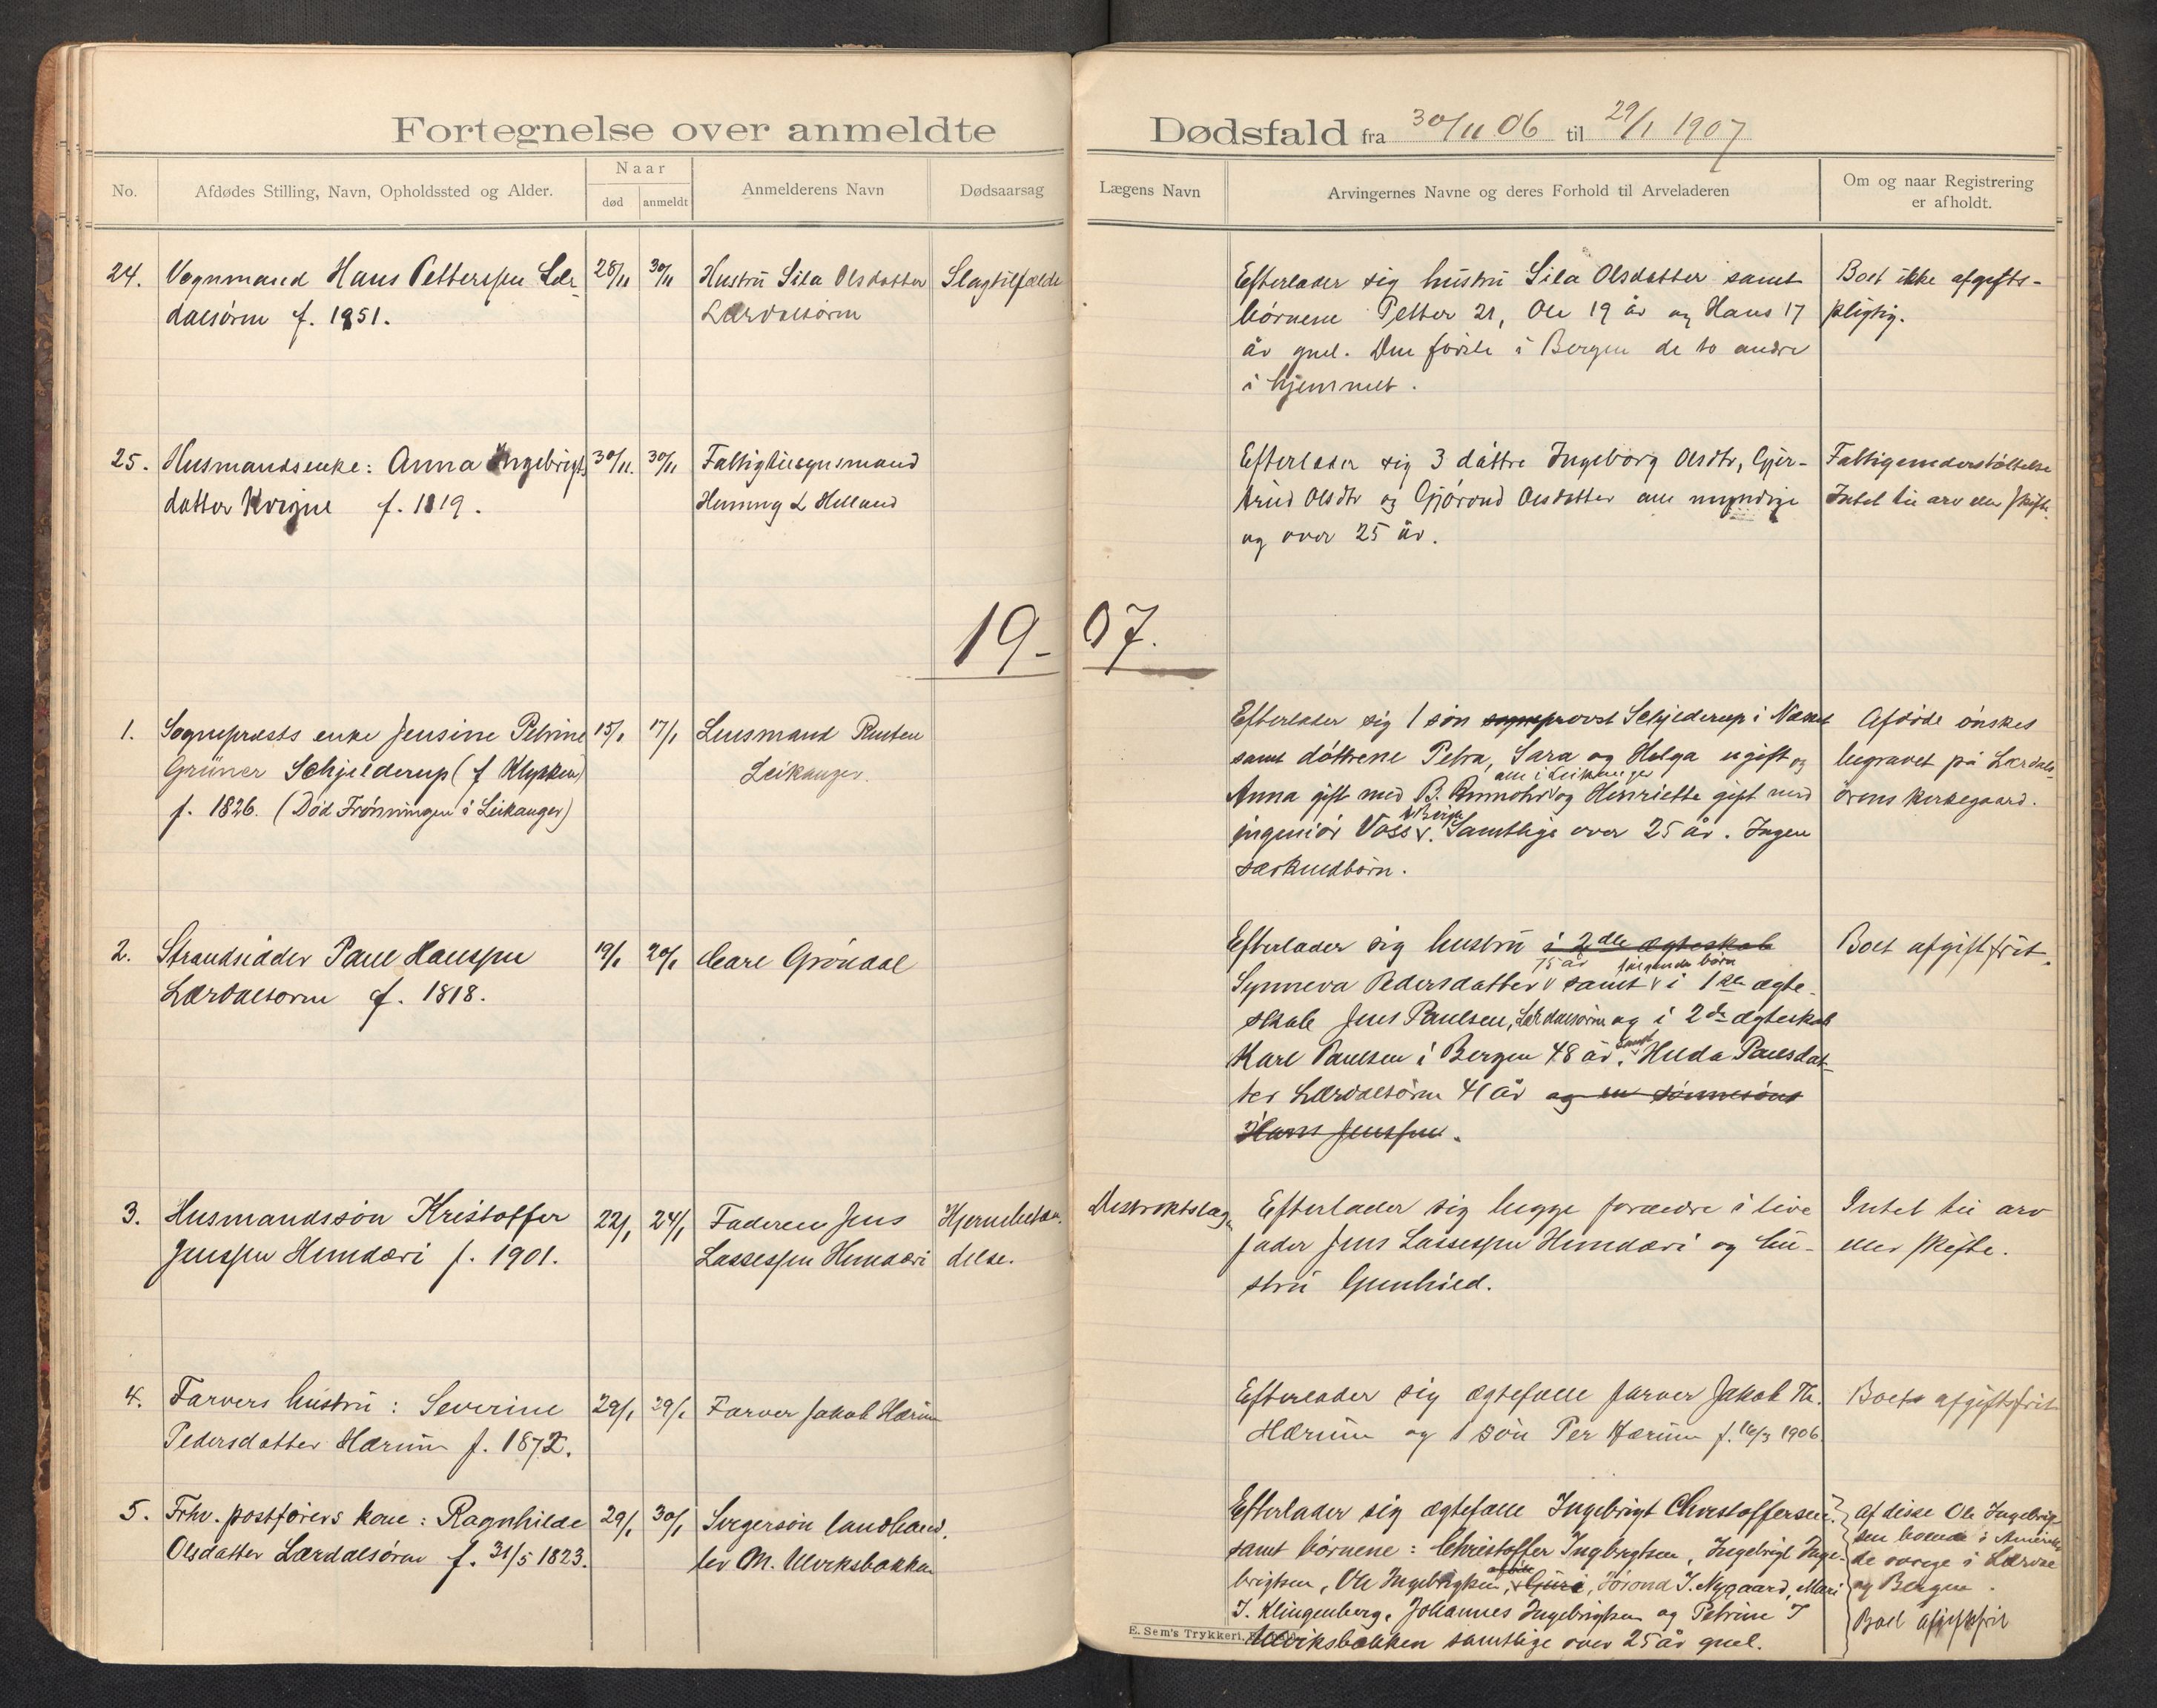 Fortegnelse over anmeldte Dødsfald fra 30/11 06 til 29/1 1907
No.
Afdødes Stilling, Navn, Opholdssted og Alder.
Naar
død
anmeldt
Anmelderens Navn
Dødsaarsag
Lægens Navn
Arvingernes Navne og deres Forhold til Arveladeren
Om og naar Registrering
er afholdt.
24.
Vognmand Hans Petterssen Lær-
dalsøren f. 1851.
28/11
30/11
Hustru Sila Olsdatter
Lærdalsøren
Slagtilfælde
Efterlader sig hustru Sila Olsdatter samt
børnene Petter 21, Ole 19 år og Hans 17
år gml. Den første i Bergen de to andre
i hjemmet.
Boet ikke afgifts-
pligtig.
25.
Husmandsenke: Anna Ingebrigts
datter Kvigne f. 1819.
30/11.
30/11
Fattigtilsynsmand
Henning L Helland
Efterlader sig 3 døttre Ingeborg Olsdtr, Gjer-
trud Olsdtr og Gjørond Olsdatter alle myndige
og over 25 år.
Fattigunderstøttelse
Intet til arv eller skifte.
19-07.
1.
Sogneprests enke Jensine Petrine
Grüner Schjelderup (f Klykken)
f. 1826. (Død Frønningen i Leikanger)
15/1
17/1
Lensmand Russten
Leikanger.
Efterlader sig 1 søn sogneprovst Schjelderup i Næset
samt døttrene Petra, Sara og Helga ugift og
alle i Leikanger
Anna gift med B. Rumohr og Henriette gift med
i Bergen
ingeniør Voss. Samtlige over 25 år. Ingen
særkuldbørn.
Afdøde ønskes
begravet på Lærdals-
ørens kirkegaard.
2.
Strandsidder Paul Hanssen
Lærdalsøren f. 1818.
19/1
20/1
Carl Grøndal
Efterlader sig hustru i 2det ægteskab
75 år følgende børn
Synneva Pedersdatter samt i 1ste ægte-
skab Jens Paulsen, Lærdalsøren og i 2det ægteskab
samt
Karl Paulsen i Bergen 48 år. Hilda Paulsdat-
ter Lærdalsøren 41 år og en sønnesøns
Hans Jenssen.
Boet afgiftsfrit.
3.
Husmandssøn Kristoffer
Jenssen Hunderi f. 1901.
22/1
24/1
Faderen Jens
Lassessen Hunderi
Hjernebetæn-
delse.
Distriktslægen
Efterlader sig begge forældre i live
fader Jens Lassessen Hunderi og hu-
stru Gunhild.
Intet til arv
eller skifte.
4.
Farvers hustru: Severine
Pedersdatter Hærum f. 1872.
29/1
29/1
Farver Jakob Hærum
Efterlader sig ægtefælle farver Jakob Th.
Hærum og 1 søn Per Hærum f. 16/3 1906.
Boet afgiftsfrit
5.
Frhv. postførers kone: Ragnhilde
Olsdatter Lærdalsøren f. 31/5 1823.
29/1
30/1
Svigersøn landhand-
ler M. Ulviksbakken
Efterlader sig ægtefælle Ingebrigt Christoffersen.
samt børnene: Christoffer Ingbrigtsen, Ingebrigt Inge-
brigtsen, Ole Ingebrigtsen, Guri, Jørond I. Nygaard, Mari
I. Klingenberg, Johannes Ingebrigtsen og Petrine I
Ulviksbakken samtlige over 25 år gml.
Af disse Ole Ingebrigt-
sen boende i Amerika
de øvrige i Lærdal
og Bergen.
Boet afgiftsfrit
E. Sem's Trykkeri,